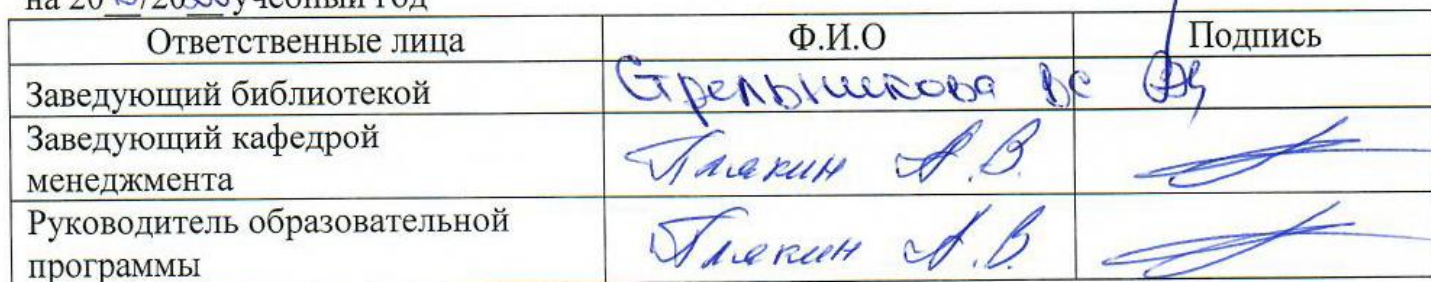 на 20 /20 учебный год
Ответственные лица Ф.И.О Подпись
Заведующий библиотекой Стрельникова ВС
Заведующий кафедрой
менеджмента Плякин А.В.
Руководитель образовательной
программы Плякин А.В.